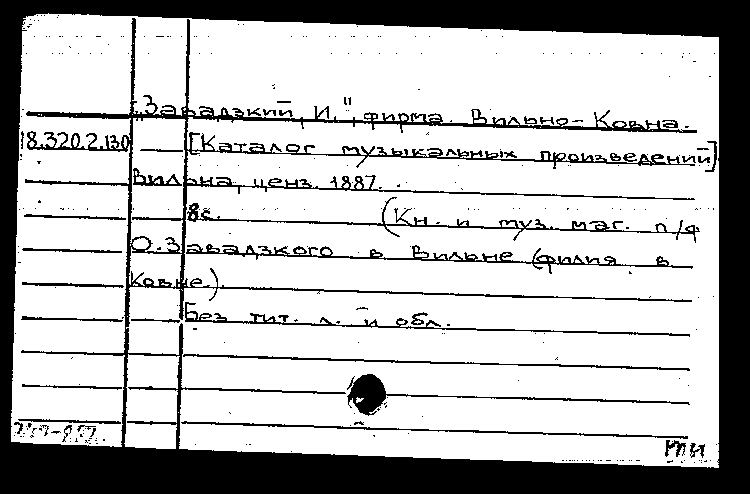 "Завадзкий, И.", фирма. Вильно-Ковна.
18.320.2.130 [Каталог музыкальных произведений]
Вильна, ценз. 1887.
8с. (Кн. и муз. маг. п/ф
О. Завадзкого в Вильне (филия в
Ковне.)
Без тит. л. и обл.